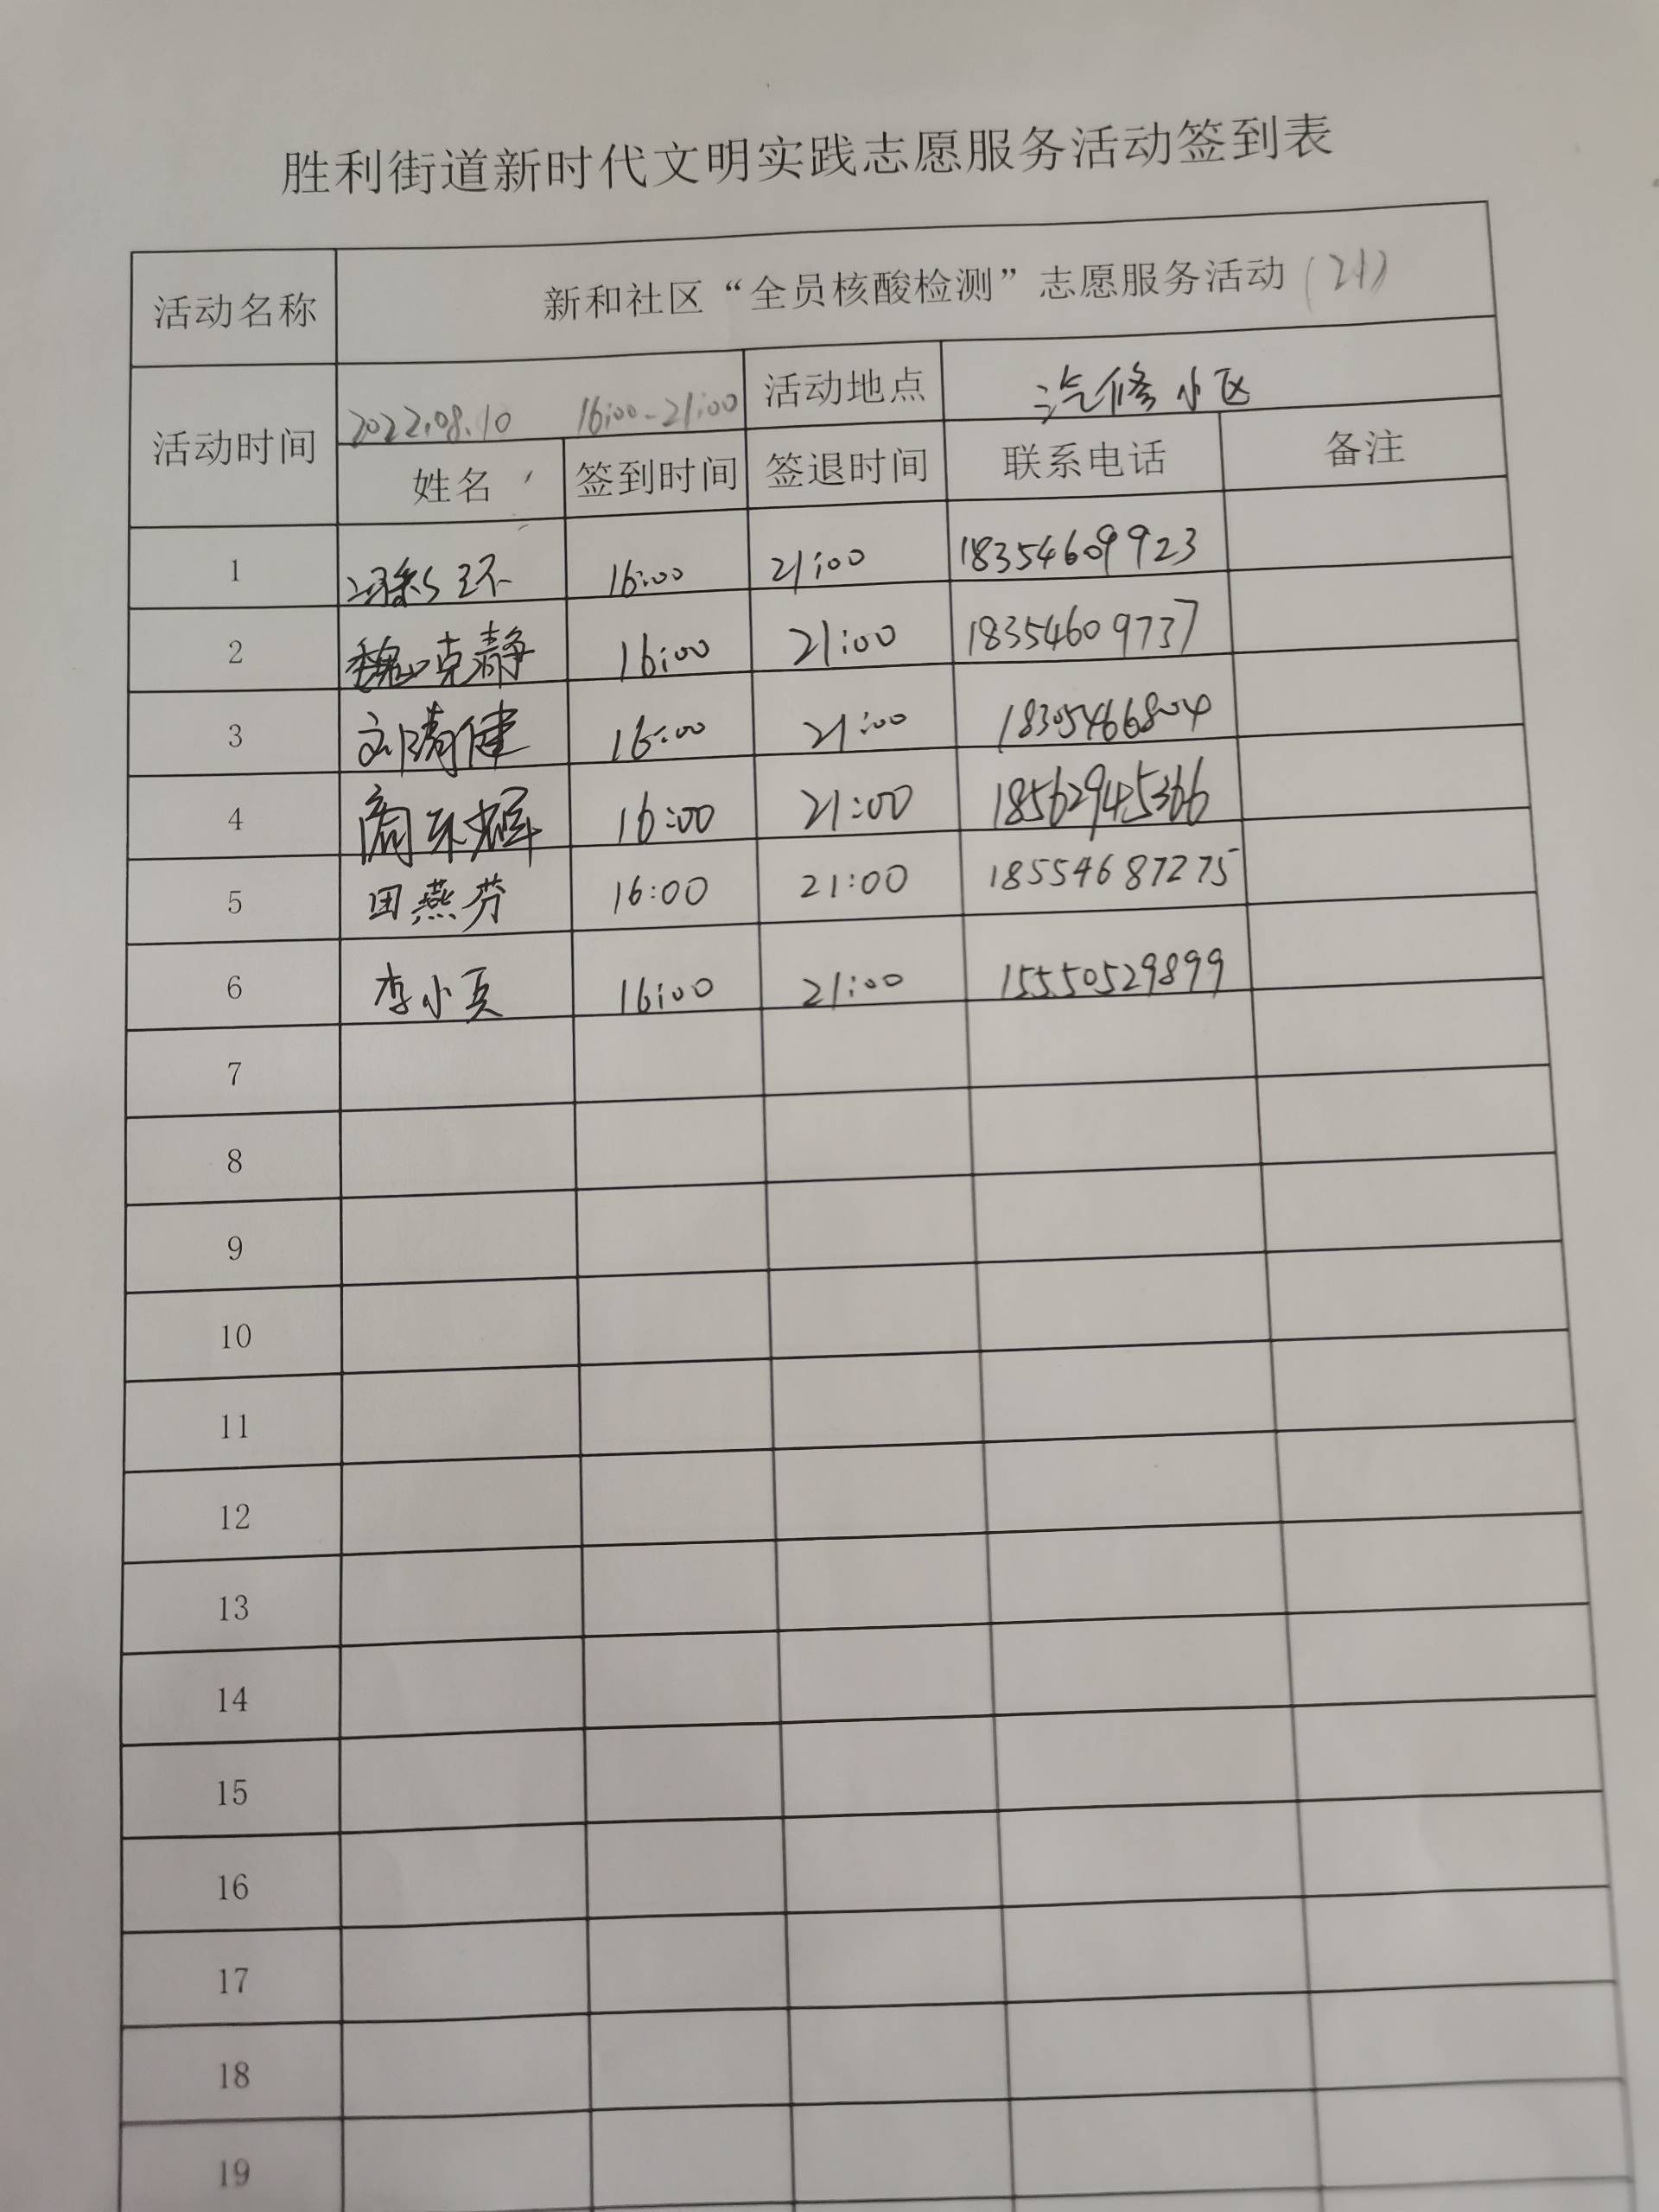 胜利街道新时代文明实践志愿服务活动签到表
活动名称 新和社区“全员核酸检测”志愿服务活动(21)
活动时间 2022.08.10 16:00-21:00 活动地点 汽修小区
姓名 签到时间 签退时间 联系电话 备注
1 16:00 21:00 18354609923
2 魏克静 16:00 21:00 18354609737
3 刘清健 16:00 21:00 18305466804
4 16:00 21:00 18562945366
5 田燕芬 16:00 21:00 18554687275
6 李小兵 16:00 21:00 15550529899
7
8
9
10
11
12
13
14
15
16
17
18
19